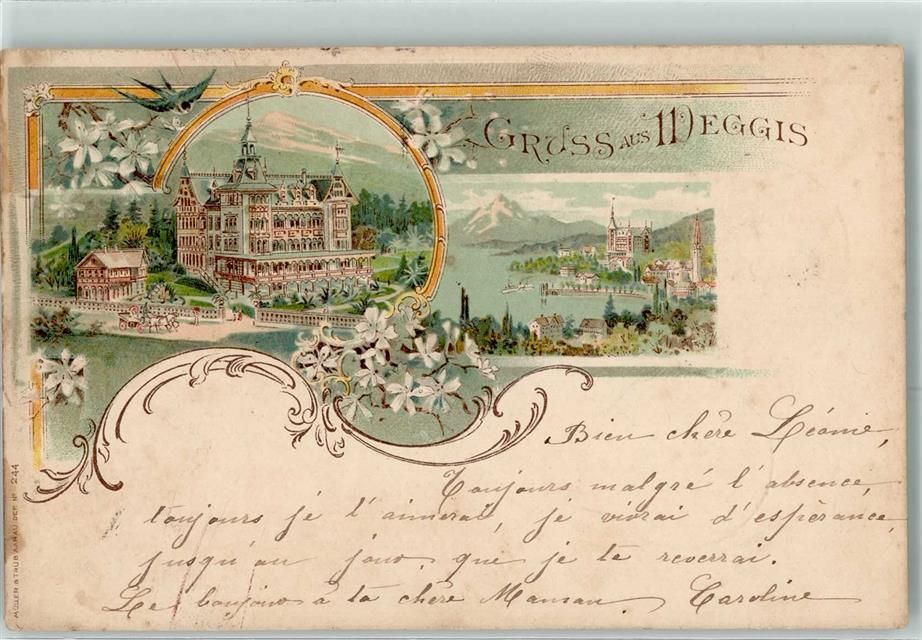 GRUSS AUS WEGGIS
Bien chère Léonie,
Toujours malgré l'absence,
toujours je t'aimerai, je vivrai d'espèrance,
jusqu'au jour, que je te reverrai.
Le bonjour à ta chère Maman. Caroline
MÜLLER & TRÜB AARAU DEP. Nº 244